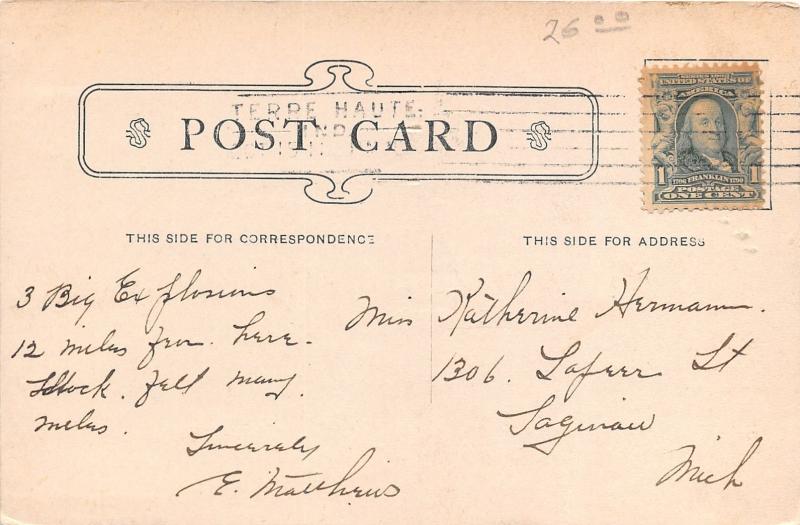 26 00
TERRE HAUTE
IND
POST CARD
SERIES 1902
UNITED STATES OF
AMERICA
1706 FRANKLIN 1790
1 POSTAGE 1
ONE CENT
THIS SIDE FOR CORRESPONDENCE
3 Big Explosions
12 miles from here.
Shock. felt many.
miles.
Sincerely
E. Matthews
THIS SIDE FOR ADDRESS
Miss Katherine Hermann.
1306. Lapeer St
Saginaw
Mich